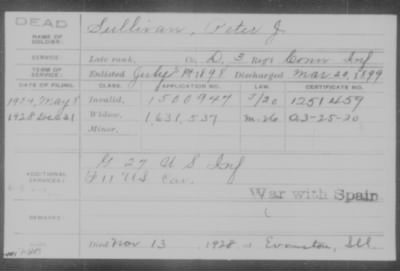 DEAD
NAME OF SOLDIER: Sullivan, Peter J.
SERVICE: Late rank, Co. D, 3 Reg't Conn Inf
TERM OF SERVICE: Enlisted July 1898 Discharged Mar 20, 1899
DATE OF FILING. CLASS. APPLICATION NO. LAW. CERTIFICATE NO.
1924 May 8 Invalid, 1500947 1251459
1928 Dec 21 Widow, 1,631,537 M-26 A3-25-30
Minor,
ADDITIONAL SERVICES: G 27 U S Inf
F 11 U S Cav.
War with Spain
REMARKS:
Died Nov 13, 1928 at Evanston, Ill.